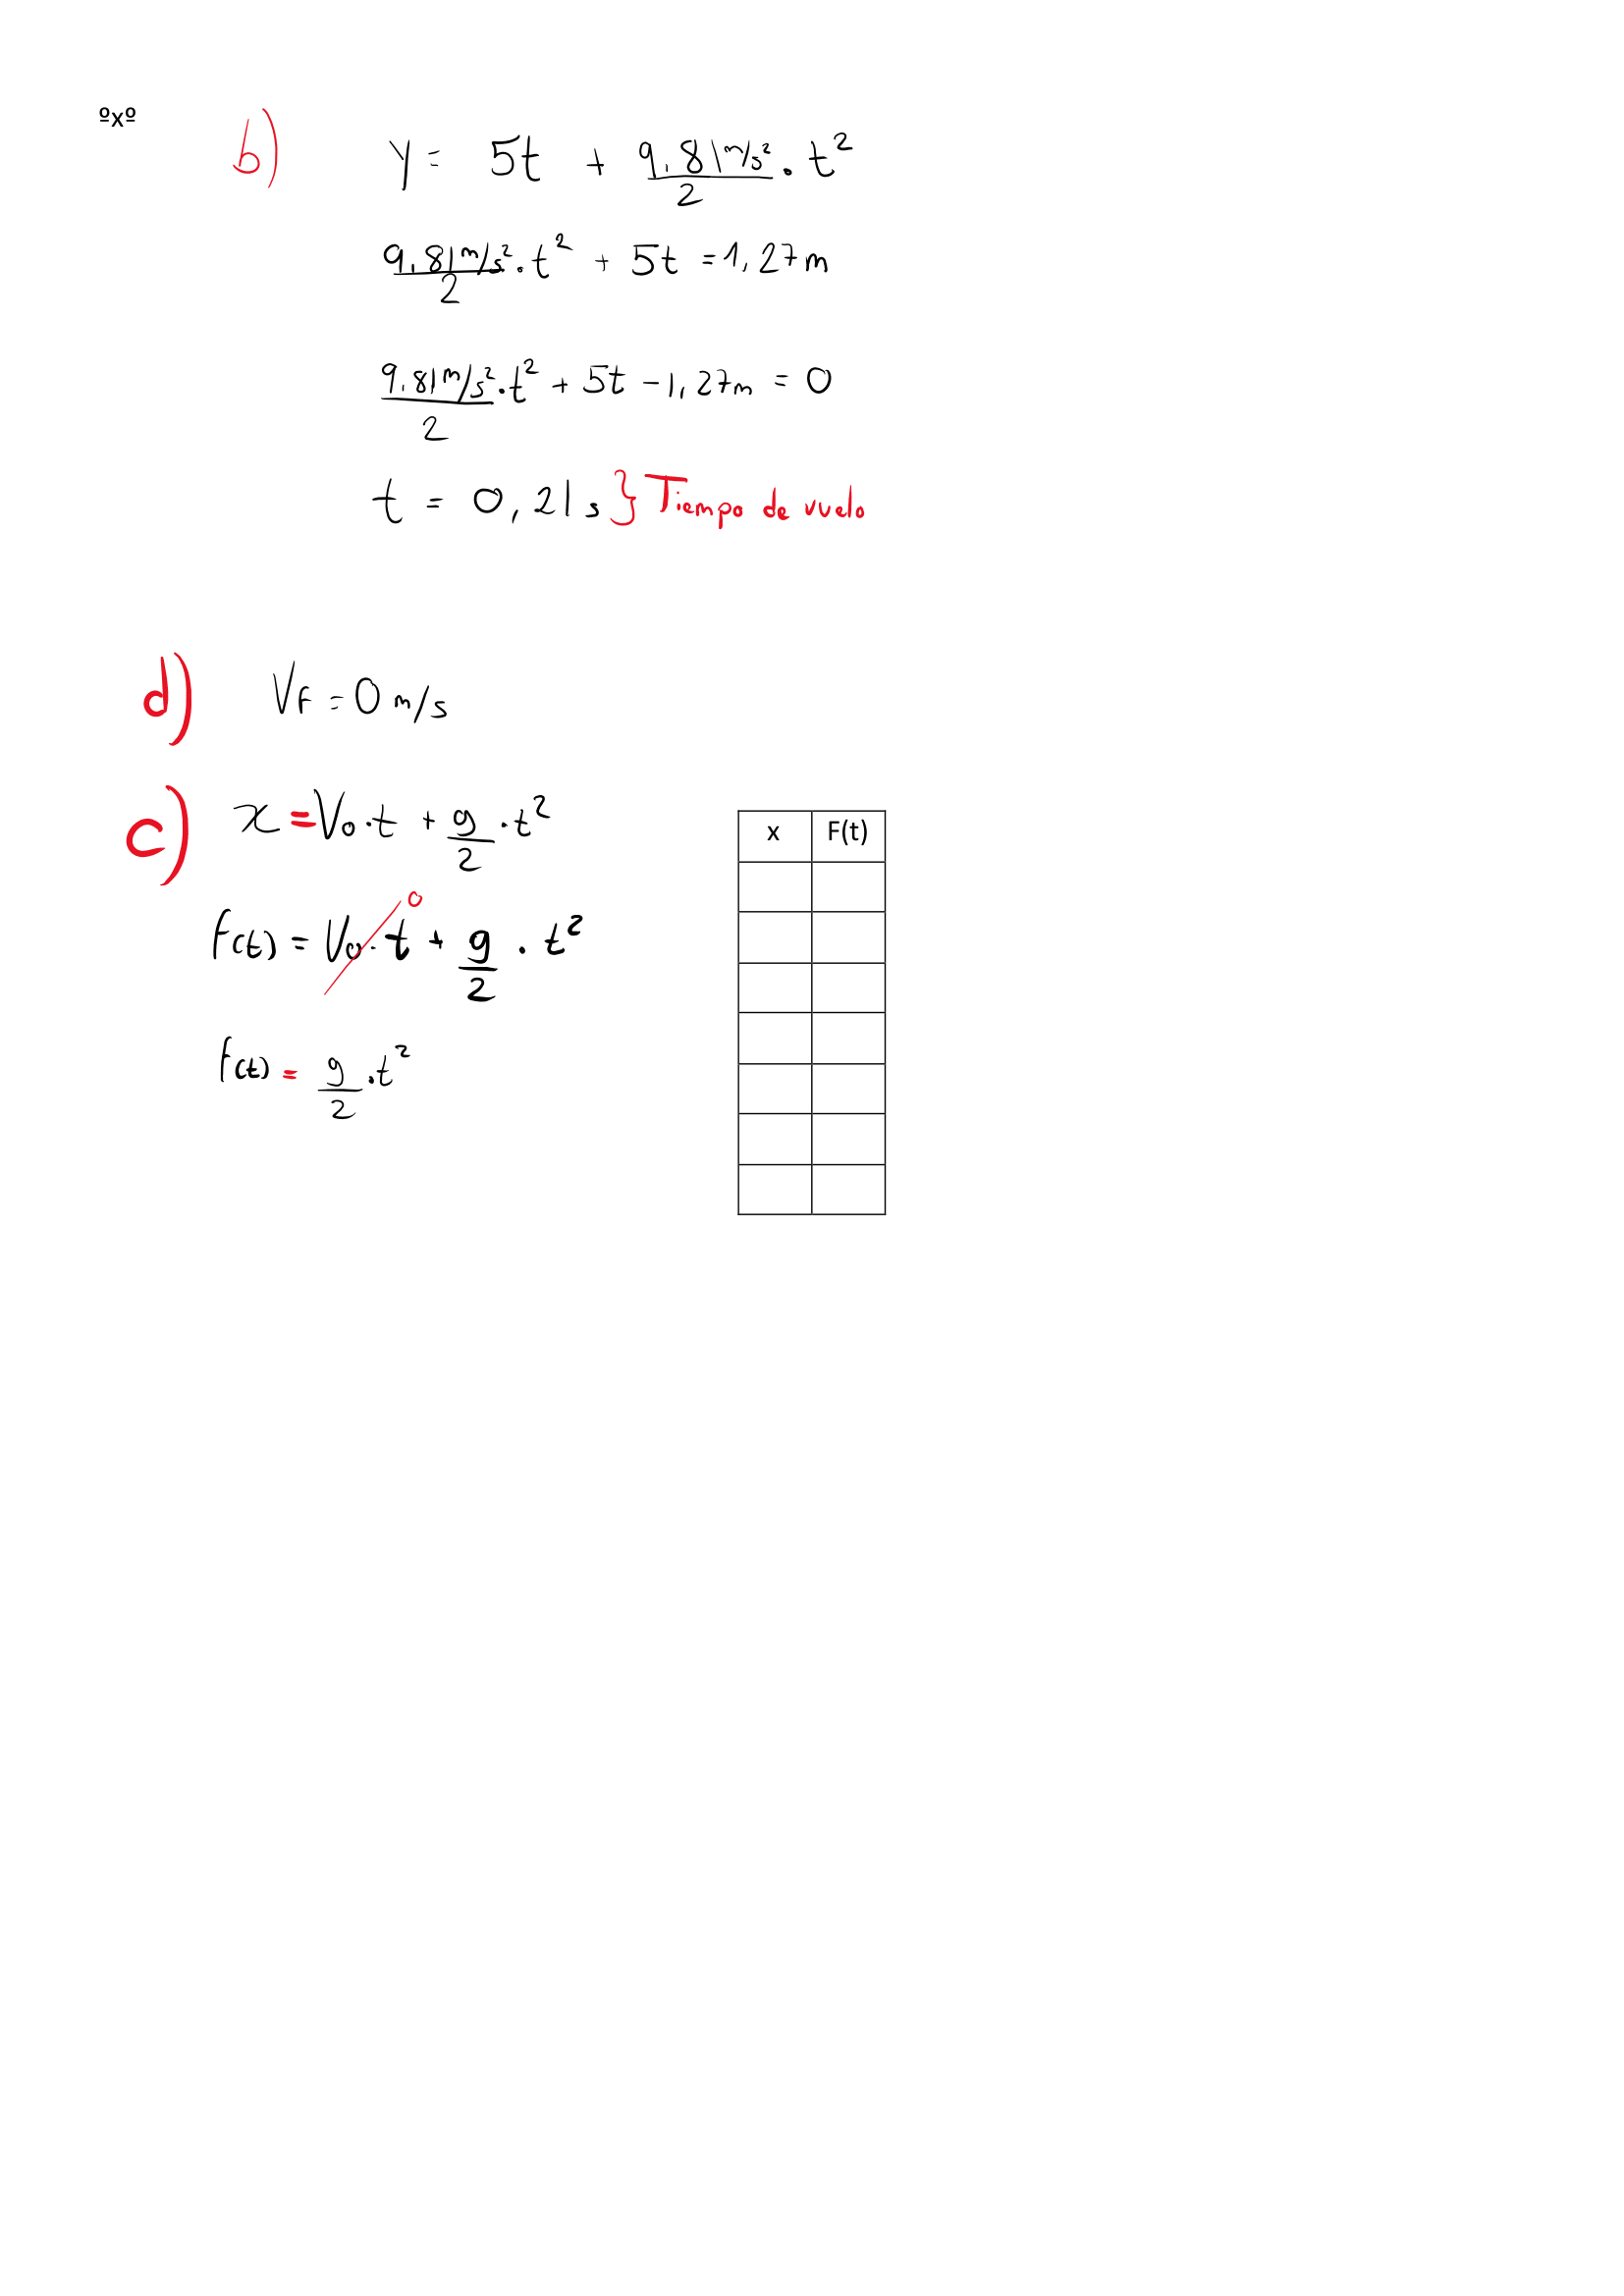 ºxº
b) y = 5t + 9,81m/s²/2 · t²
9,81m/s²/2 · t² + 5t = 1,27m
9,81m/s²/2 · t² + 5t - 1,27m = 0
t = 0,21s } Tiempo de vuelo
d) VF = 0 m/s
c) x = V₀ · t + g/2 · t²
f(t) = V₀ · t 0 + g/2 · t²
f(t) = g/2 · t²
x F(t)